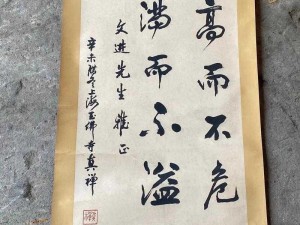 高而不危
满而不溢
文进先生雅正
辛未腊冬上海玉佛寺真禅